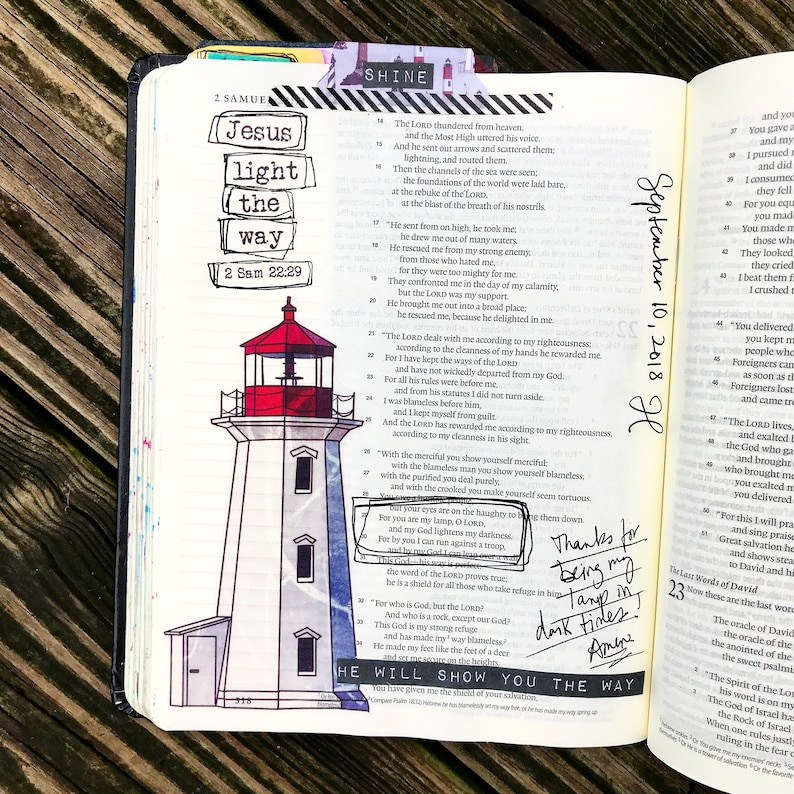 SHINE
2 SAMUE
Jesus
light
the
way
2 Sam 22:29
14 The LORD thundered from heaven,
and the Most High uttered his voice.
15 And he sent out arrows and scattered them;
lightning, and routed them.
16 Then the channels of the sea were seen;
the foundations of the world were laid bare,
at the rebuke of the LORD,
at the blast of the breath of his nostrils.
17 "He sent from on high, he took me;
he drew me out of many waters.
18 He rescued me from my strong enemy,
from those who hated me,
for they were too mighty for me.
19 They confronted me in the day of my calamity,
but the LORD was my support.
20 He brought me out into a broad place;
he rescued me, because he delighted in me.
21 "The LORD dealt with me according to my righteousness;
according to the cleanness of my hands he rewarded me.
22 For I have kept the ways of the LORD
and have not wickedly departed from my God.
23 For all his rules were before me,
and from his statutes I did not turn aside.
24 I was blameless before him,
and I kept myself from guilt.
25 And the LORD has rewarded me according to my righteousness,
according to my cleanness in his sight.
26 "With the merciful you show yourself merciful;
with the blameless man you show yourself blameless;
27 with the purified you deal purely,
and with the crooked you make yourself seem tortuous.
28 You save a humble people,
but your eyes are on the haughty to bring them down.
For you are my lamp, O LORD,
and my God lightens my darkness.
30 For by you I can run against a troop,
and by my God I can leap over a wall.
This God—his way is perfect;
the word of the LORD proves true;
he is a shield for all those who take refuge in him.
32 "For who is God, but the LORD?
And who is a rock, except our God?
33 This God is my strong refuge
and has made my way blameless.
34 He made my feet like the feet of a deer
and set me secure on the heights.
HE WILL SHOW YOU THE WAY
You have given me the shield of your salvation,
318
Compare Psalm 18:32; Hebrew he has blamelessly set my way free, or he has made my way spring up
September 10, 2018
Thanks for
being my
lamp in
dark times!
Amen
and you
37 You gave a
and my
38 I pursued
and did
39 I consumed
they fell
40 For you equ
you made
41 You made m
those who
42 They looked
they cried
43 I beat them f
I crushed
44 "You delivered
you kept m
people who
45 Foreigners cam
as soon as th
46 Foreigners lost
and came tro
47 "The LORD lives,
and exalted b
48 the God who ga
and brought
49 who brought me
you exalted m
you delivered
50 "For this I will pra
and sing praise
51 Great salvation he
and shows stea
to David and his
The Last Words of David
23 Now these are the last wor
The oracle of David
the oracle of the
the anointed of the
the sweet psalmis
2 "The Spirit of the LOR
his word is on my
3 The God of Israel has
the Rock of Israel
When one rules justly
ruling in the fear o